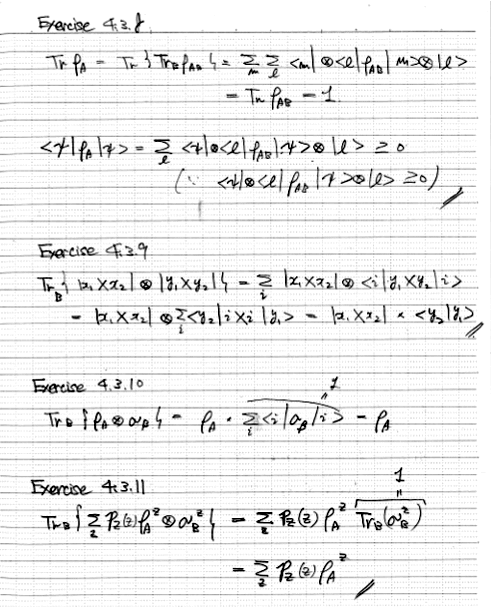 Exercise 4.3.8
Tr ρ_A = Tr { Tr_B ρ_AB } = Σ_m Σ_l <m|⊗<l| ρ_AB |m>⊗|l>
= Tr ρ_AB = 1.
<ψ|ρ_A|ψ> = Σ_l <ψ|⊗<l| ρ_AB |ψ>⊗|l> ≥ 0
(∵ <ψ|⊗<l| ρ_AB |ψ>⊗|l> ≥ 0)
Exercise 4.3.9
Tr_B { |x₁X x₂| ⊗ |y₁X y₂| } = Σ_i |x₁X x₂| ⊗ <i|y₁X y₂|i>
= |x₁X x₂| ⊗ Σ_i <y₂|i X i|y₁> = |x₁X x₂| × <y₂|y₁>
Exercise 4.3.10
1
Tr_B { ρ_A ⊗ σ_B } = ρ_A · Σ_i <i|σ_B|i> = ρ_A
Exercise 4.3.11
1
Tr_B { Σ_z P_Z(z) ρ_A^z ⊗ σ_B^z } = Σ_z P_Z(z) ρ_A^z Tr_B(σ_B^z)
= Σ_z P_Z(z) ρ_A^z